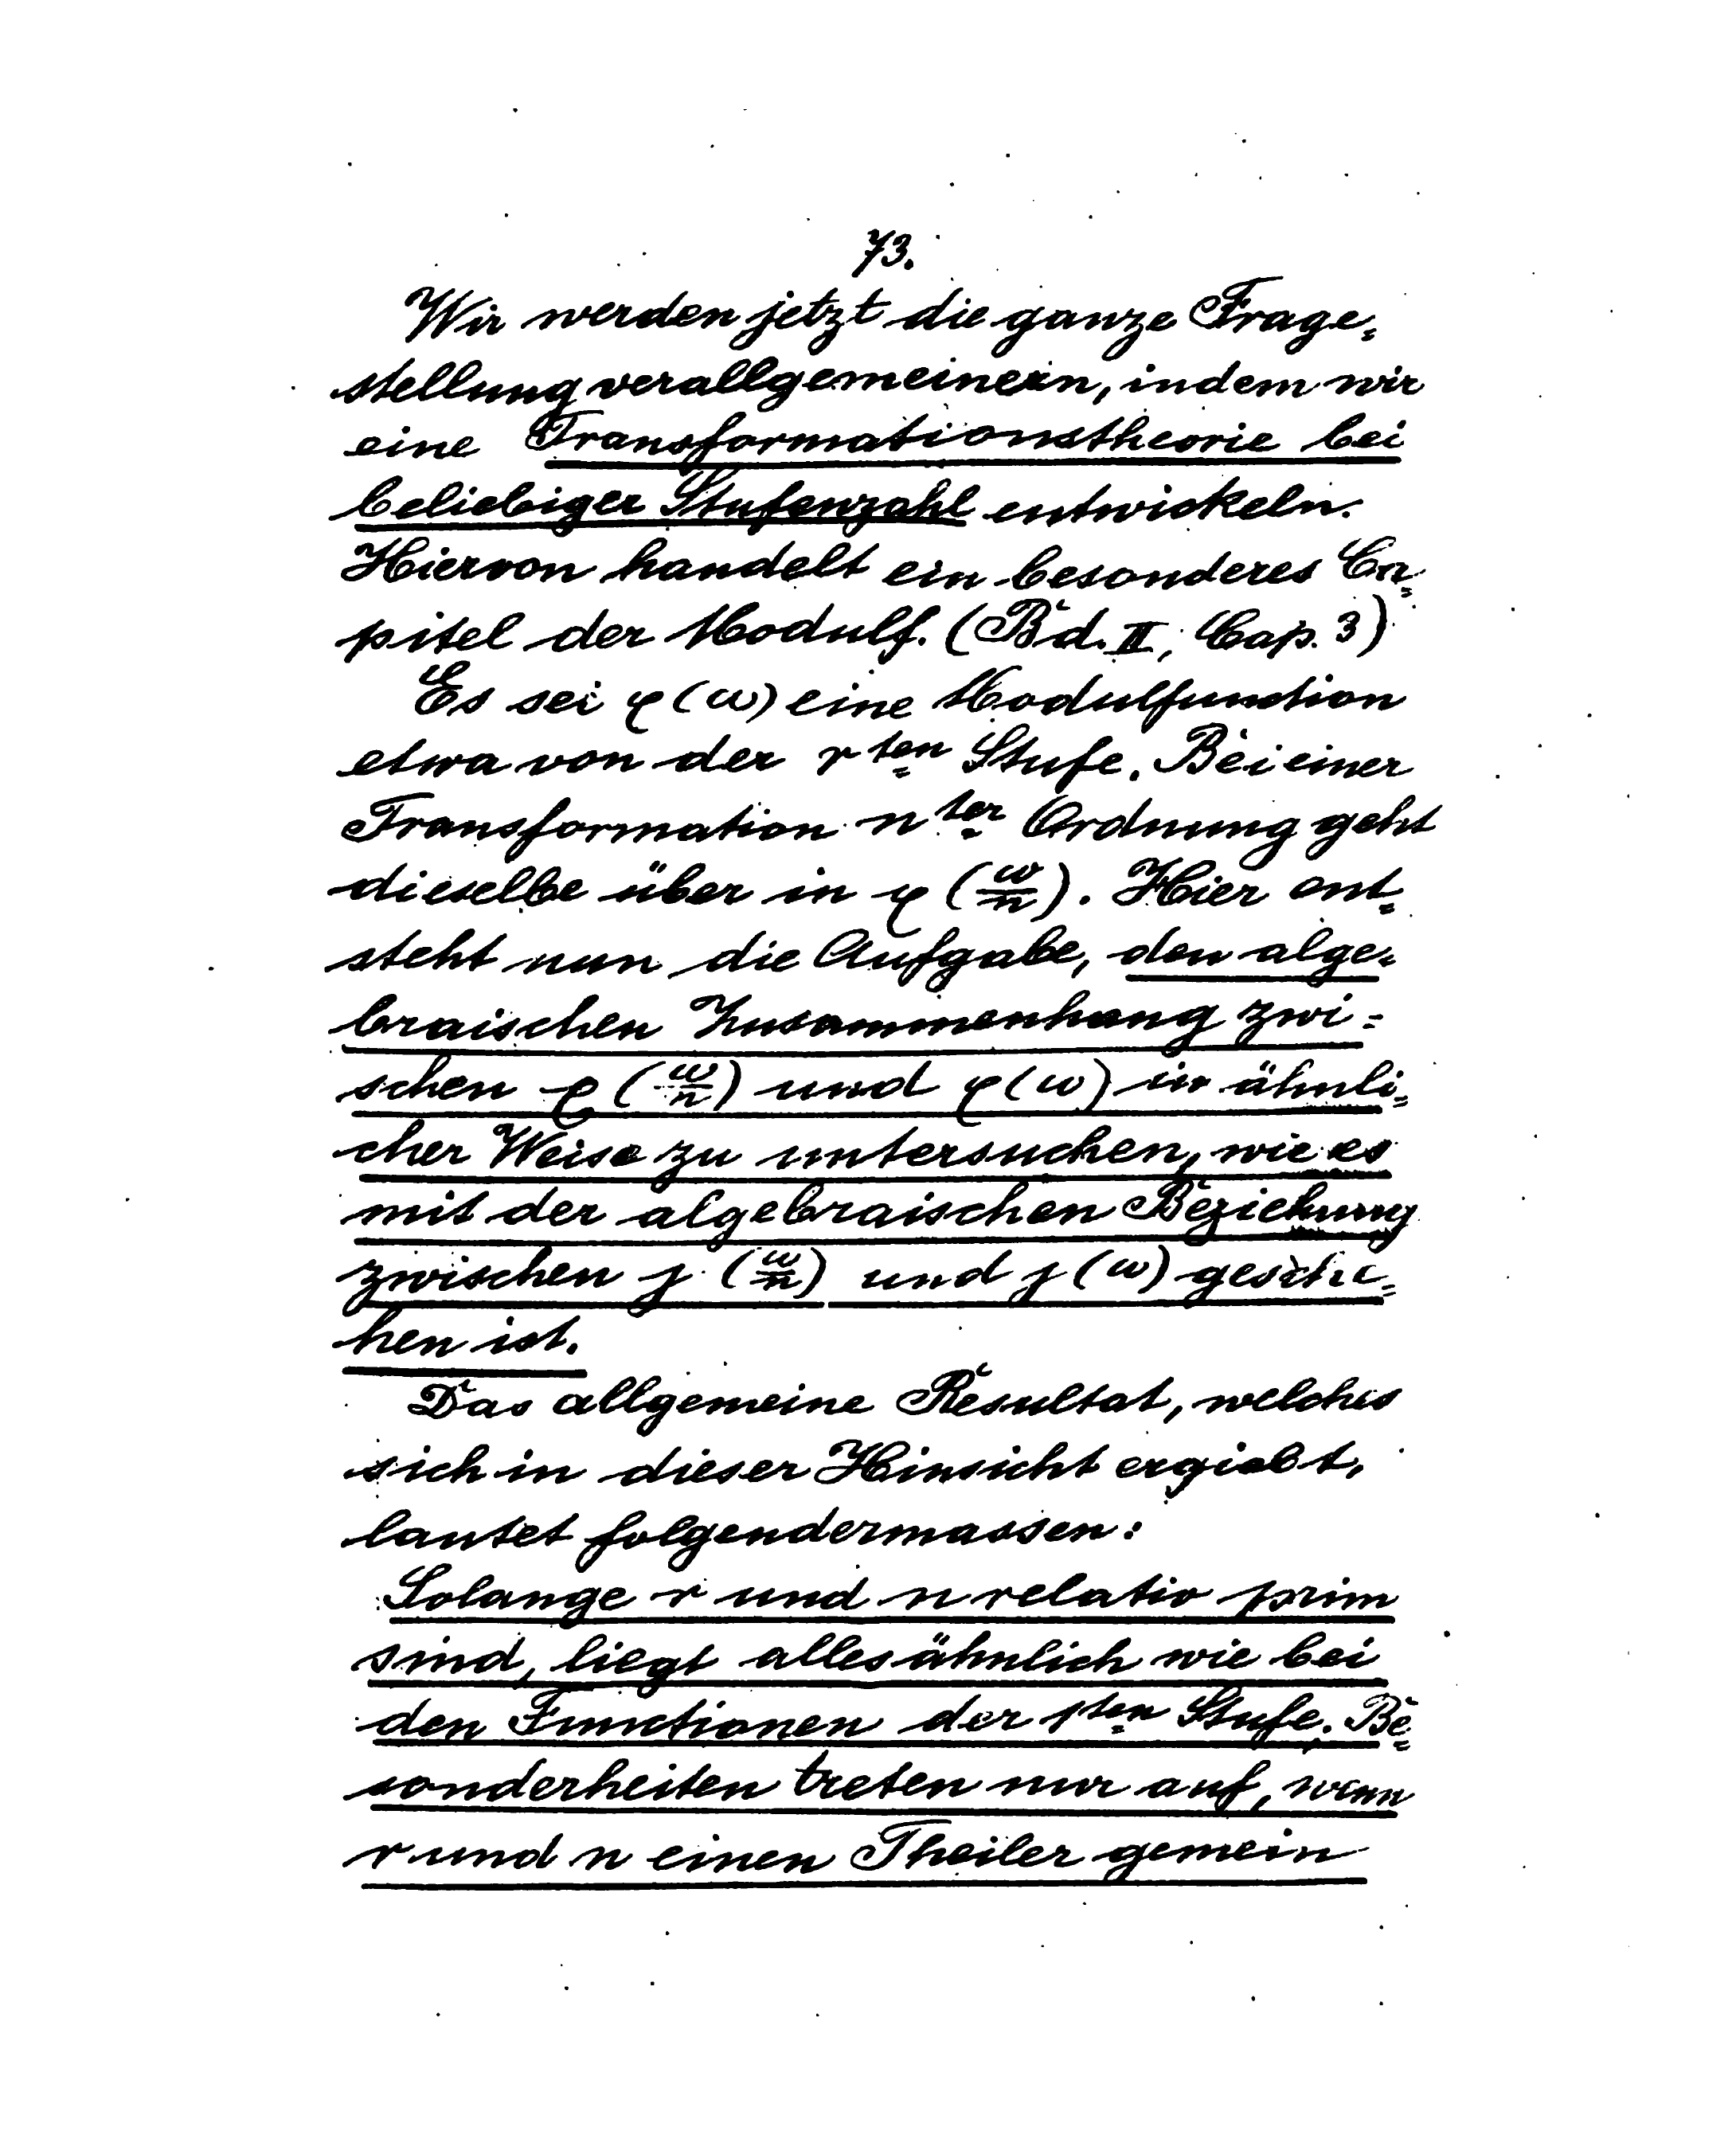 73.
Wir werden jetzt die ganze Frage=
stellung verallgemeinern, indem wir
eine Transformationstheorie bei
beliebiger Stufenzahl entwickeln.
Hiervon handelt ein besonderes Ca=
pitel der Modulf. (Bd. II, Cap. 3)
Es sei φ(ω) eine Modulfunction
etwa von der r ten Stufe. Bei einer
Transformation n ter Ordnung geht
dieselbe über in φ(ω/n). Hier ent=
steht nun die Aufgabe, den alge=
braischen Zusammenhang zwi=
schen φ(ω/n) und φ(ω) in ähnli=
cher Weise zu untersuchen, wie es
mit der algebraischen Beziehung
zwischen j(ω/n) und j(ω) gesche=
hen ist.
Das allgemeine Resultat, welches
sich in dieser Hinsicht ergiebt,
lautet folgendermassen:
Solange r und n relativ prim
sind, liegt alles ähnlich wie bei
den Functionen der 1ten Stufe. Be=
sonderheiten treten nur auf, wenn
r und n einen Theiler gemein